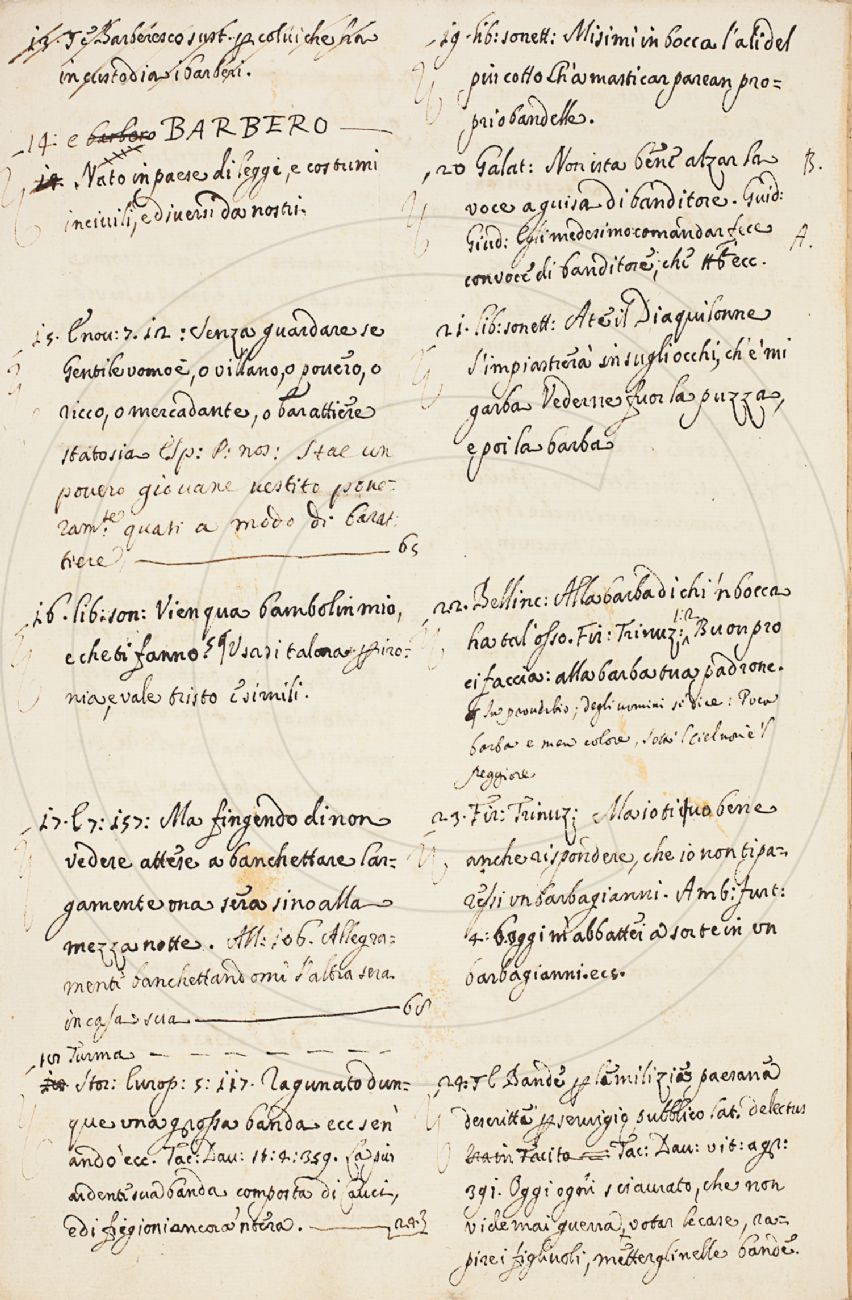 13. Tē Barberesco sust. ꝑ colui che ha
in custodia i barberi.
14: e barbero BARBERO
14. Nato in paese di leggi, e costumi
inciuili, e diuersi da nostri.
15. l nou: 7. 12: Senza guardare se
Gentile uomo è, o villano, o pouero, o
ricco, o mercadante, o barattiere
stato sia Esp: P: nos: Stae un
pouero giouane uestito poue=
ram.te quasi a modo di barat:
tiere, 65
16. lib: son: Vien qua bambolin mio,
e che ti fanno? Usasi talora ꝑ iro=
nia, e uale tristo e simili.
17. l 7: 157: Ma fingendo di non
vedere attese a banchettare lar=
gamente una sera sino alla
mezza notte. All: 106. Allegra=
mente banchettandomi l'altra sera
in casa sua 68
18 Turma
18 Stor: Europ: 5: 117. Ragunato dun=
que una grossa banda ecc sen'
andò ecc. Tac: Dau: 18: 4: 359. La più
ardente sua banda composta di Cauci,
e di frigioni ancora 'ntera. 243
19. lib: sonett: Misimi in bocca l'ali del
più cotto Ch'a masticar parean pro=
prio bandelle.
20 Galat: Non ista bene alzar la B.
voce a guisa di banditore. Guid:
Giud: Egli medesimo comandar fece A.
con voce di banditore, che ecc.
21. lib: sonett: Ate il Diaquilonne
s'impiastrerà in su gli occhi, ch'e' mi
garba Vederne fuor la puzza,
e poi la barba
22. Bellinc: Alla barba di chi 'n bocca
ha tal'osso. Fir: Trinuz: 1: 2 Buon pro
ci faccia: alla barba tua padrone.
In prouerbio, degli uomini si dice: Poca
barba e men colore, sotto 'l ciel non è 'l
peggiore
23. Fir: Trinuz: Ma io ti uo bene
anche rispondere, che io non ti pa=
ressi un barbagianni. Amb: furt:
4: 6 oggi m'abbattei a sorte in un
barbagianni. ecc.
24: Tl Bande ꝑ la milizia paesana
descritta ꝑ seruigio pubblico lat: delectus
in Tacito Tac: Dau: vit: agr:
391. Oggi ogni sciaurato, che non
vide mai guerra, votar le case, ra=
pire i figliuoli, metterglinelle bande.